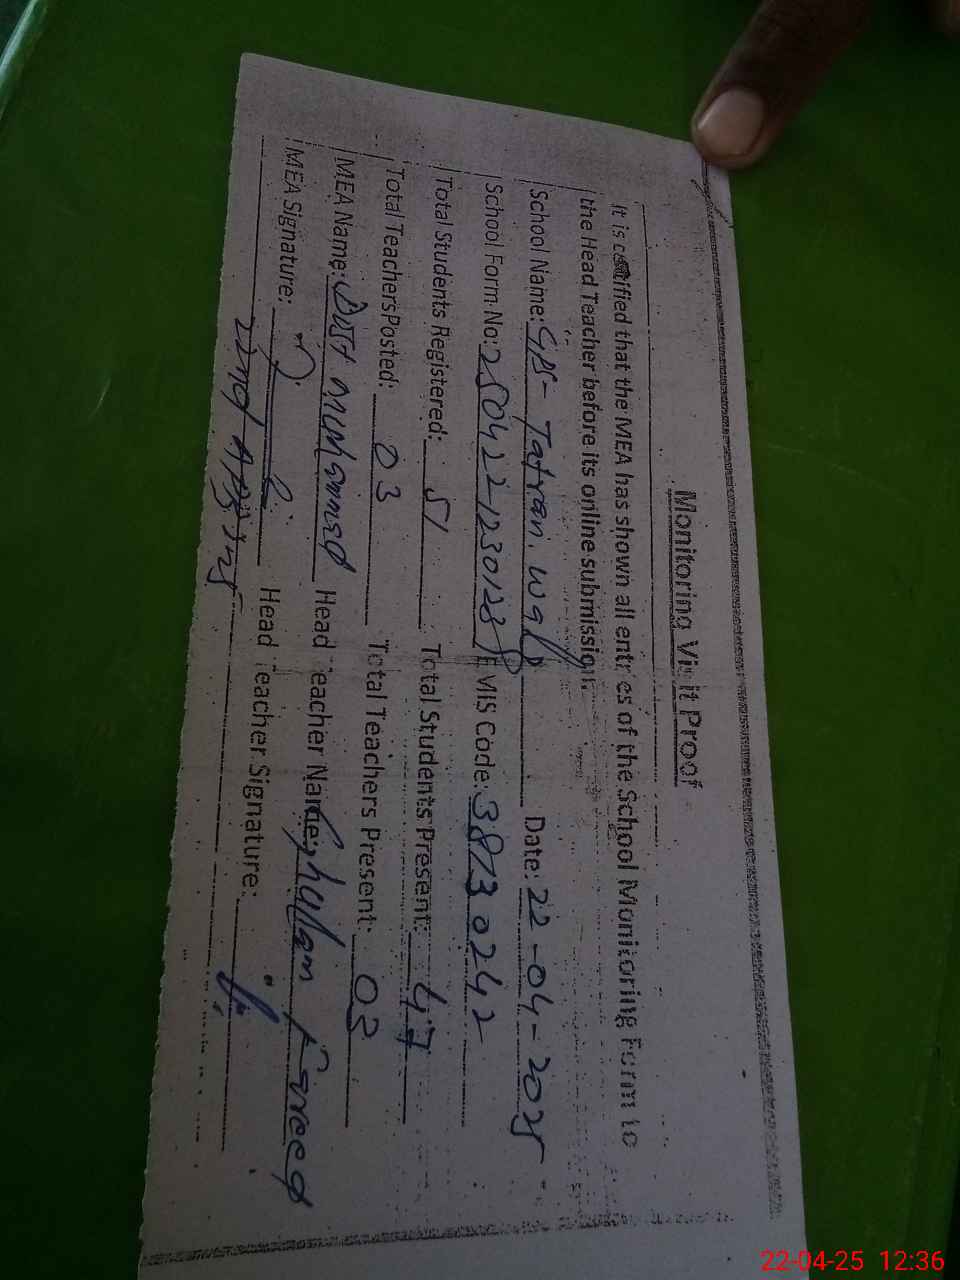 Monitoring Visit Proof
It is certified that the MEA has shown all entries of the School Monitoring Form to
the Head Teacher before its online submission.
School Name: GPS- Tatran. wala Date: 22-04-2025
School Form No: EMIS Code: 38730242
Total Students Registered: 51 Total Students Present: 47
Total Teachers Posted: 03 Total Teachers Present: 03
MEA Name: Dost Muhammad Head Teacher Name: ghullam Fareed
MEA Signature: Head Teacher Signature:
22nd
22-04-25 12:36